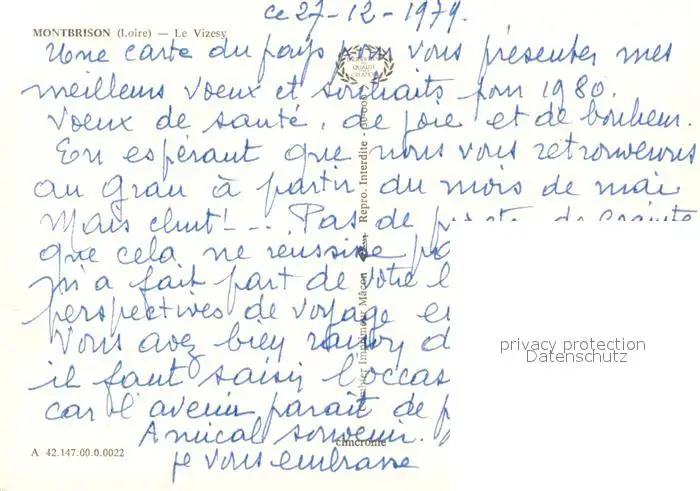 ce 27-12-1979.
MONTBRISON (Loire) — Le Vizesy
Une carte du pays pour vous présenter mes
meilleurs voeux et souhaits pour 1980.
Voeux de santé, de joie et de bonheur.
En espérant que nous vous retrouverons
au Grau à partir du mois de mai
Mais chut!... Pas de projets de crainte
que cela ne réussisse
m'a fait part de votre
perspectives de voyage
Vous avez bien raison
il faut saisir l'occas
car l'avenir parait de
Amical souvenir.
je vous embrasse
A 42.147.00.0.0022
Combier Imprimeur Mâcon
Repro. Interdite
cimcrome
QUALITÉ
CRÉATION
privacy protection
Datenschutz